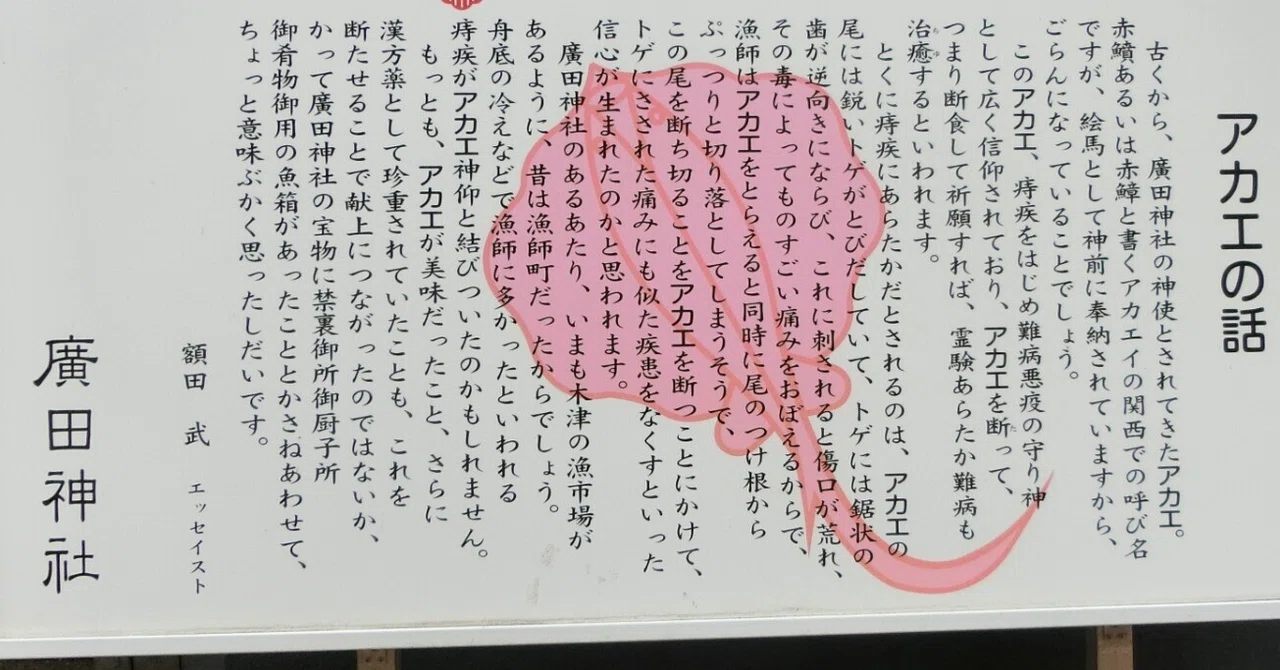 アカエの話
古くから、廣田神社の神使とされてきたアカエ。
赤鱝あるいは赤鱆と書くアカエイの関西での呼び名
ですが、絵馬として神前に奉納されていますから、
ごらんになっていることでしょう。
このアカエ、痔疾をはじめ難病悪疫の守り神
として広く信仰されており、アカエを断って、
つまり断食して祈願すれば、霊験あらたか難病も
治癒するといわれます。
とくに痔疾にあらたかだとされるのは、アカエの
尾には鋭いトゲがとびだしていて、トゲには鋸状の
歯が逆向きにならび、これに刺されると傷口が荒れ、
その毒によってものすごい痛みをおぼえるからで、
漁師はアカエをとらえると同時に尾のつけ根から
ぷっつりと切り落としてしまうそうで、
この尾を断ち切ることをアカエを断つことにかけて、
トゲにさされた痛みにも似た疾患をなくすといった
信心が生まれたのかと思われます。
廣田神社のあるあたり、いまも木津の漁市場が
あるように、昔は漁師町だったからでしょう。
舟底の冷えなどで漁師に多かったといわれる
痔疾がアカエ神仰と結びついたのかもしれません。
もっとも、アカエが美味だったこと、さらに
漢方薬として珍重されていたことも、これを
断たせることで献上につながったのではないか、
かって廣田神社の宝物に禁裏御所御厨子所
御肴物御用の魚箱があったこととかさねあわせて、
ちょっと意味ぶかく思ったしだいです。
額田 武 エッセイスト
廣田神社